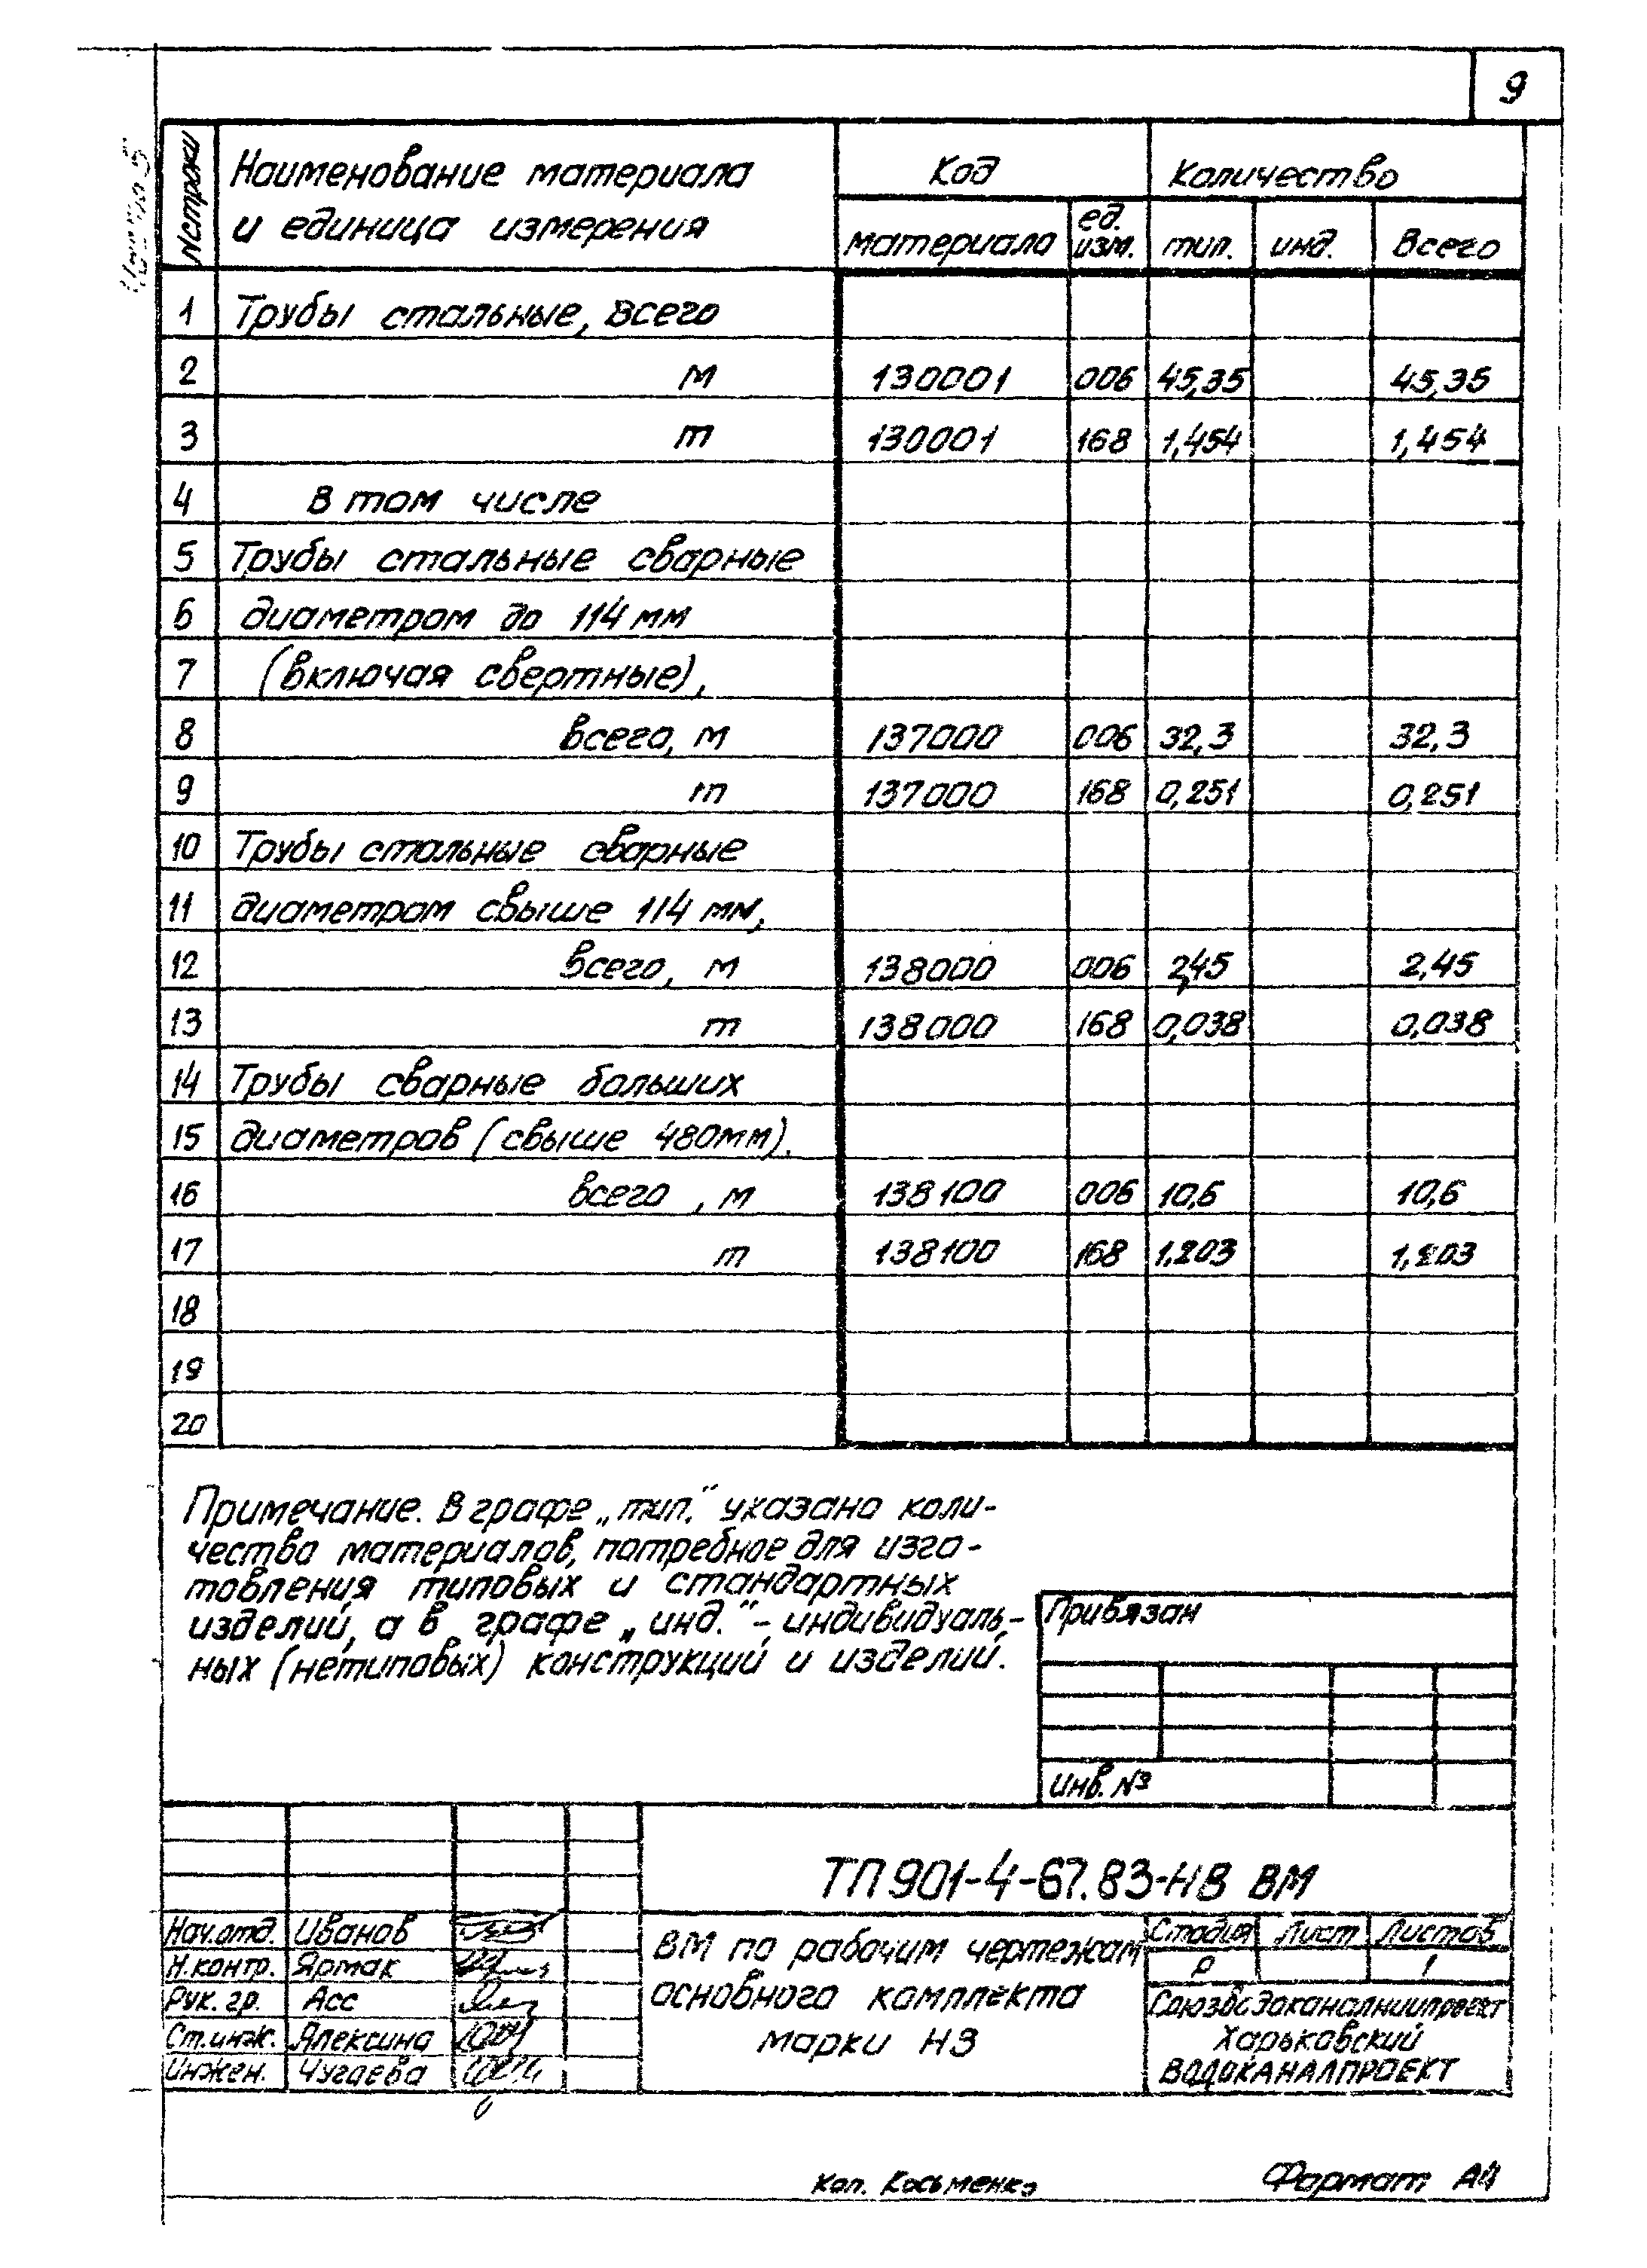 9
№ строки
Наименование материала
и единица измерения
Код
Количество
материала
ед.
изм.
тип.
инд.
Всего
1 Трубы стальные, всего
2 м 130001 006 45,35 45,35
3 т 130001 168 1,454 1,454
4 в том числе
5 Трубы стальные сварные
6 диаметром до 114 мм
7 (включая свертные),
8 всего, м 137000 006 32,3 32,3
9 т 137000 168 0,251 0,251
10 Трубы стальные сварные
11 диаметром свыше 114 мм,
12 всего, м 138000 006 2,45 2,45
13 т 138000 168 0,038 0,038
14 Трубы сварные больших
15 диаметров (свыше 480мм),
16 всего, м 138100 006 10,6 10,6
17 т 138100 168 1,203 1,203
18
19
20
Примечание. В графе „тип." указано коли-
чество материалов, потребное для изго-
товления типовых и стандартных
изделий, а в графе „инд." - индивидуаль-
ных (нетиповых) конструкций и изделий.
Привязан
Инв. №
ТП 901-4-67.83-НВ ВМ
Нач.отд. Иванов
Н.контр. Ярмак
Рук. гр. Асс
Ст.инж. Алексина
Инжен. Чугаева
ВМ по рабочим чертежам
основного комплекта
марки НВ
Стадия Лист Листов
Р 1
Союзводоканалниипроект
Харьковский
ВОДОКАНАЛПРОЕКТ
Коп. Косьменко
Формат А4